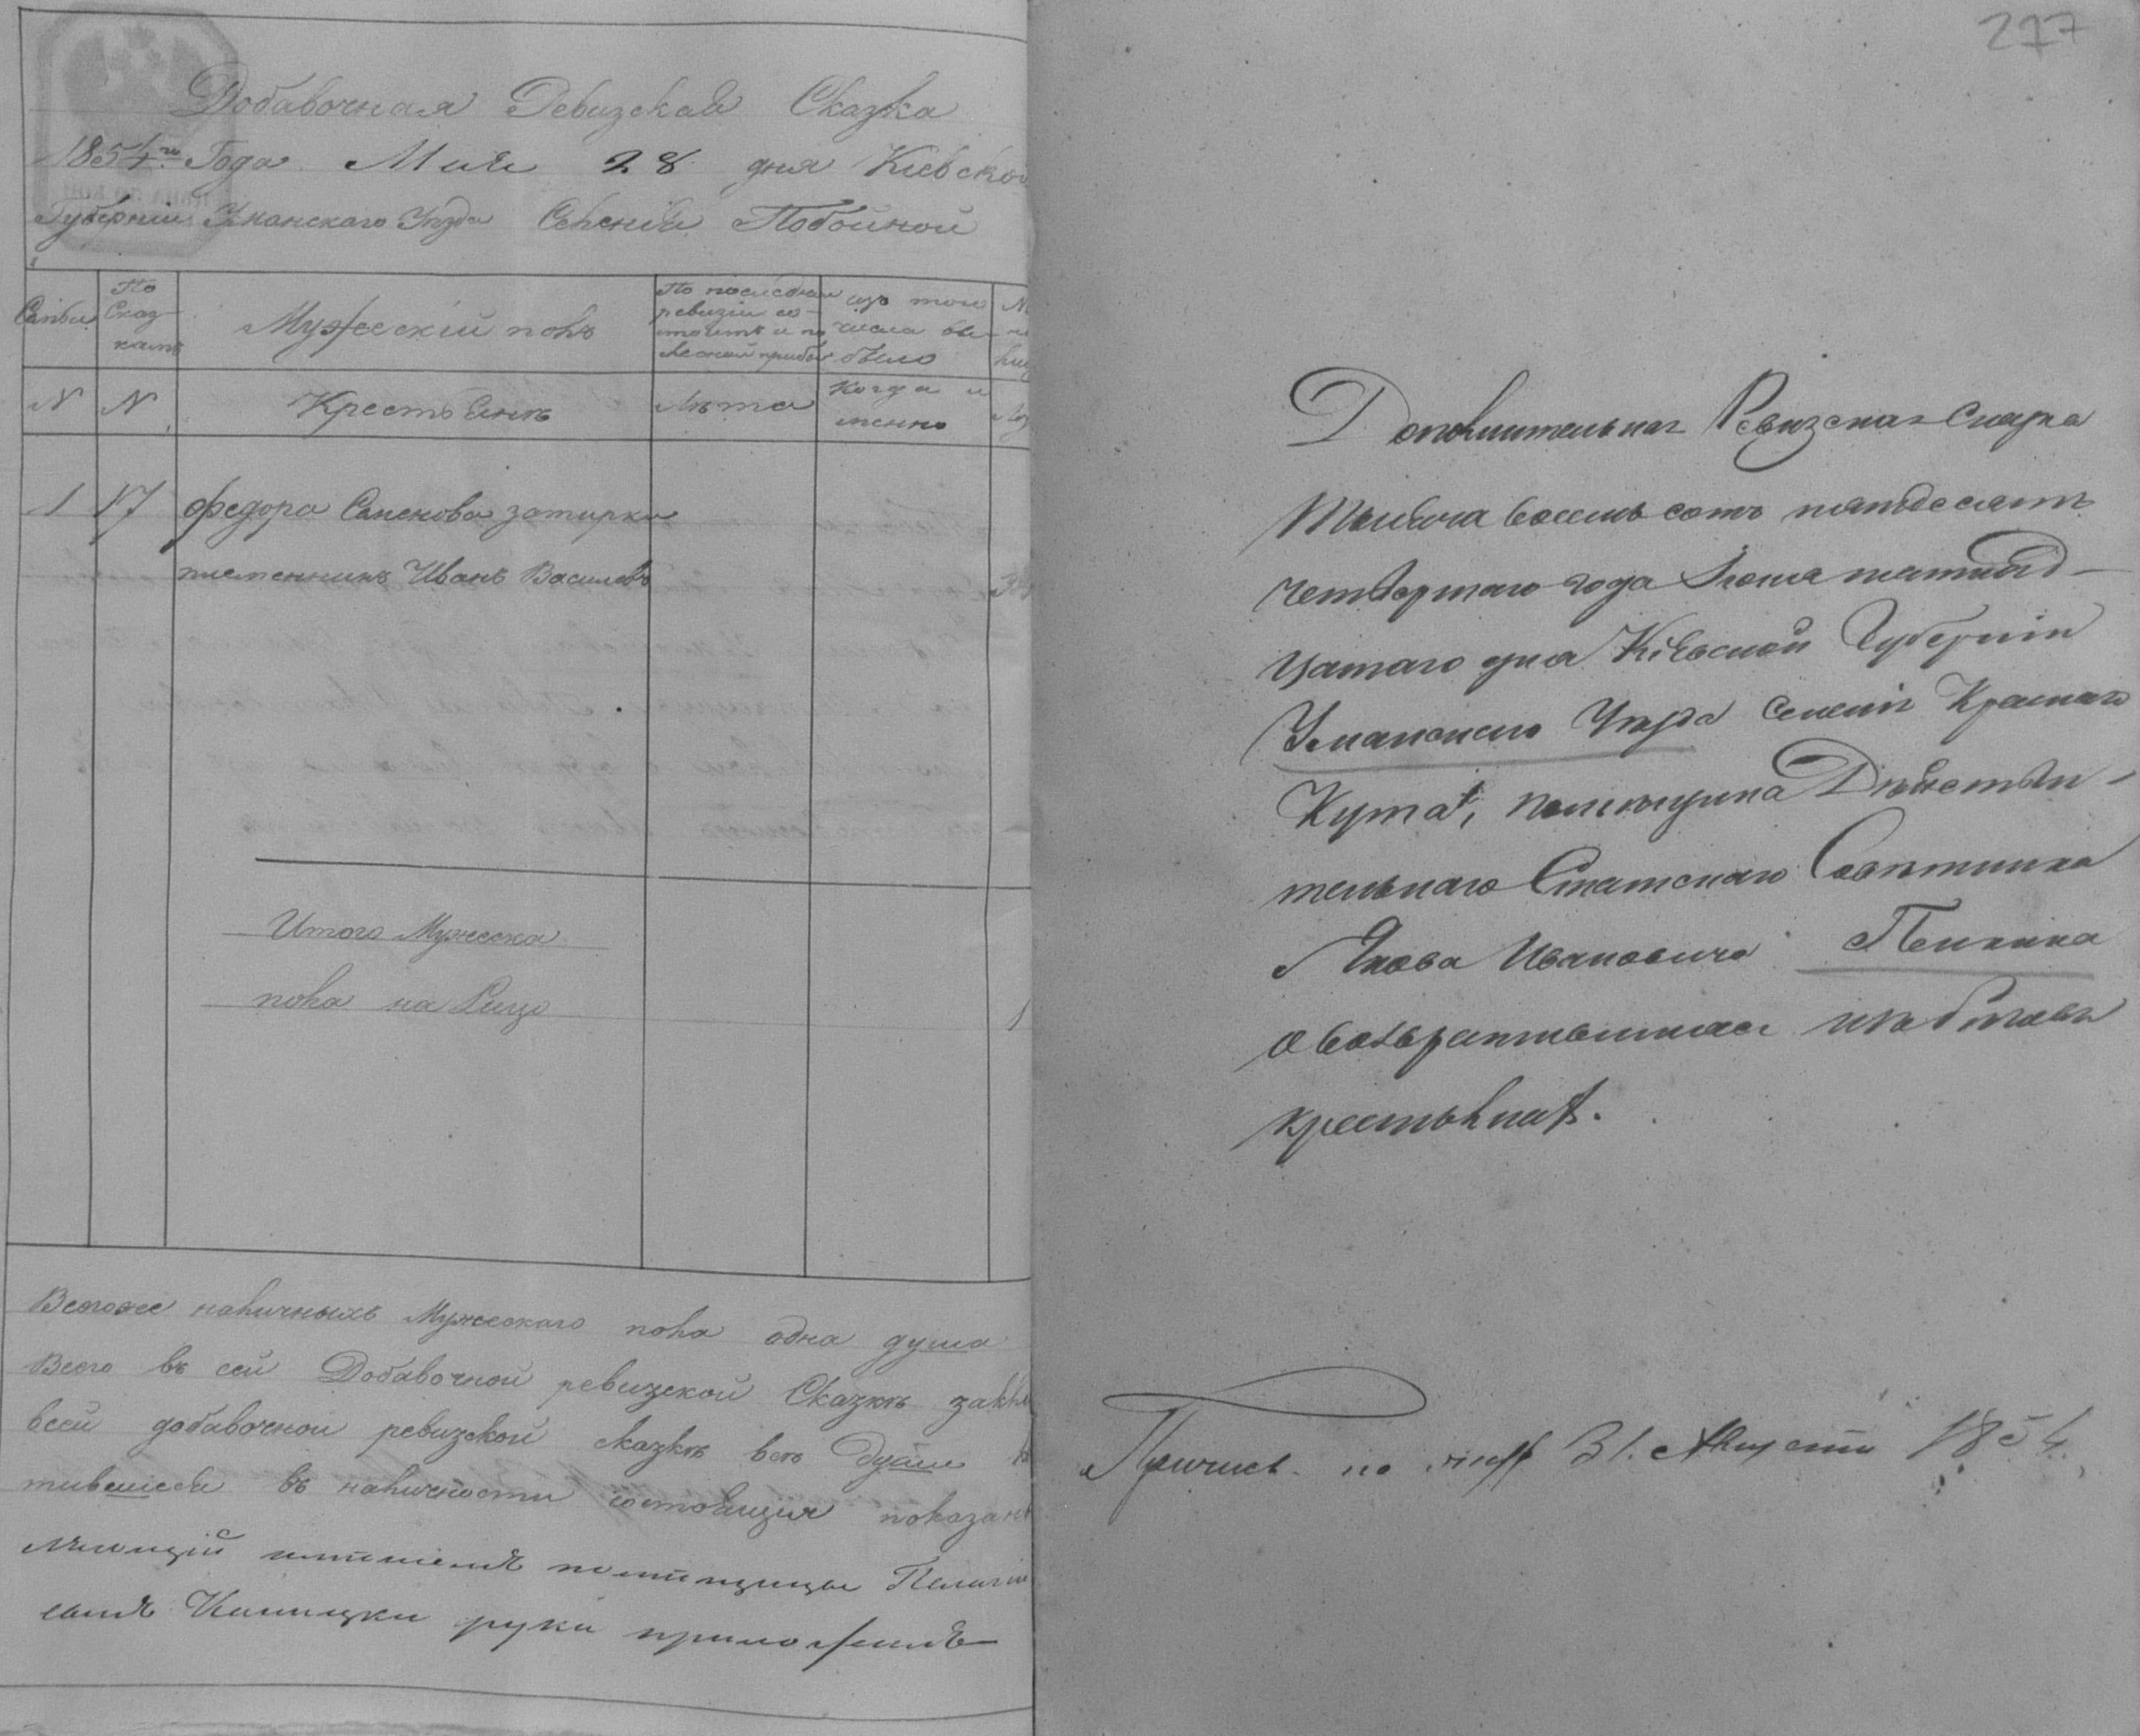 Добавочная Ревизская Сказка
1854го Года Мая 28 дня Кіевской
Губерніи Уманскаго Уѣзда Селенія Побойной
Семьи
По Сказкамъ
Мужескій полъ
По послѣдней ревизіи состоитъ и послѣ оной прибыло
изъ того числа выбыло
N
N
Крестьянъ
Лѣта
Когда именно
1 17 Федора Семенова затирки
племенникъ Иванъ Васильевъ
Итого Мужеска
пола на Лицо
1
Всегоже наличныхъ Мужескаго пола одна душа
Всего въ сей Добавочной ревизской Сказкѣ
всей добавочной ревизской сказкѣ всѣ души
тившіеся въ наличности состоящія показан
помѣщицы
руки приложилъ
277
Дополнительная Ревизская Сказка
Тысяча восемь сотъ пятьдесятъ
четвертаго года Іюня пятнад-
цатаго дня Кіевской Губерніи
Уманскаго Уѣзда селенія Краснаго
Кута, помѣщика Дѣйстви-
тельнаго Статскаго Совѣтника
Якова Ивановича Пенкина
о возвратившихся изъ бѣговъ
крестьянахъ.
31. Августа 1854